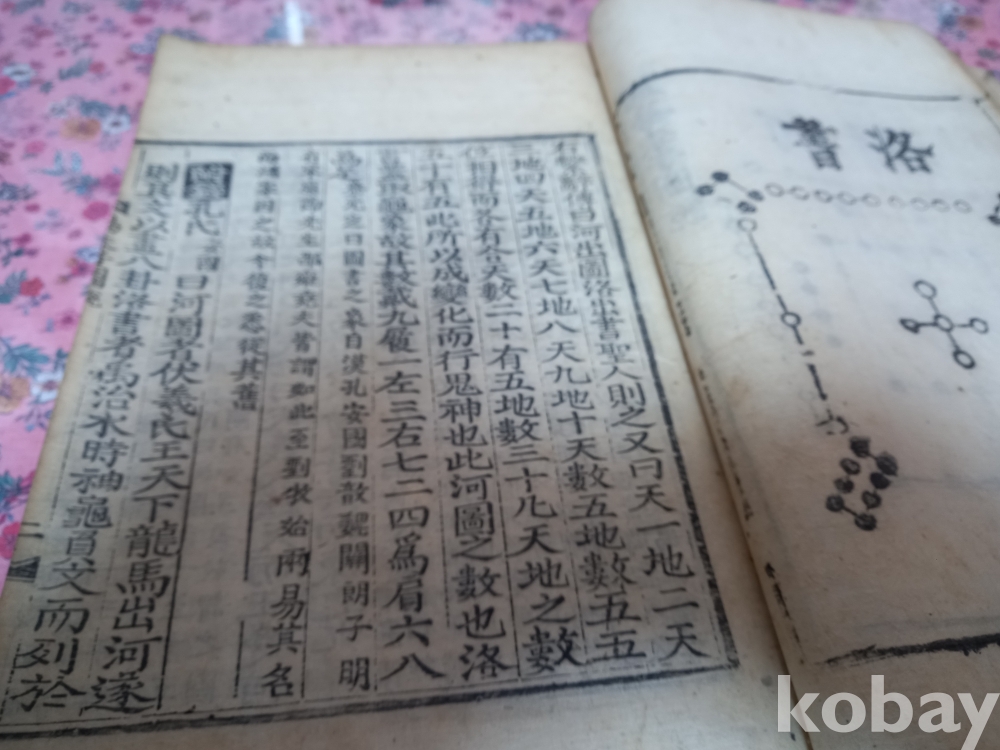 洛書
傳曰河出圖洛出書聖人則之又曰天一地二天
三地四天五地六天七地八天九地十天數五地數五五
位相得而各有合天數二十有五地數三十凡天地之數
五十有五此所以成變化而行鬼神也此河圖之數也洛
書蓋取龜象故其數戴九履一左三右七二四爲肩六八
爲足蔡元定曰圖書之象自漢孔安國劉歆魏關朗子明
有宋康節先生邵雍堯夫皆謂如此至劉牧始兩易其名
而諸家因之故今復之悉從其舊
孔氏安國曰河圖者伏羲氏王天下龍馬出河遂
則其文以畫八卦洛書者禹治水時神龜負文而列於
二
kobay